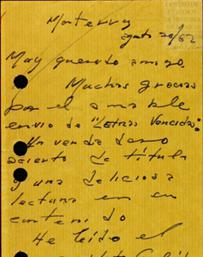 Monterrey
agosto 20/52
Muy querido amigo
Muchas gracias
por el amable
envío de "Letras Vencidas".
Un verdadero
acierto de título
y una deliciosa
lectura en su
contenido
He leído el